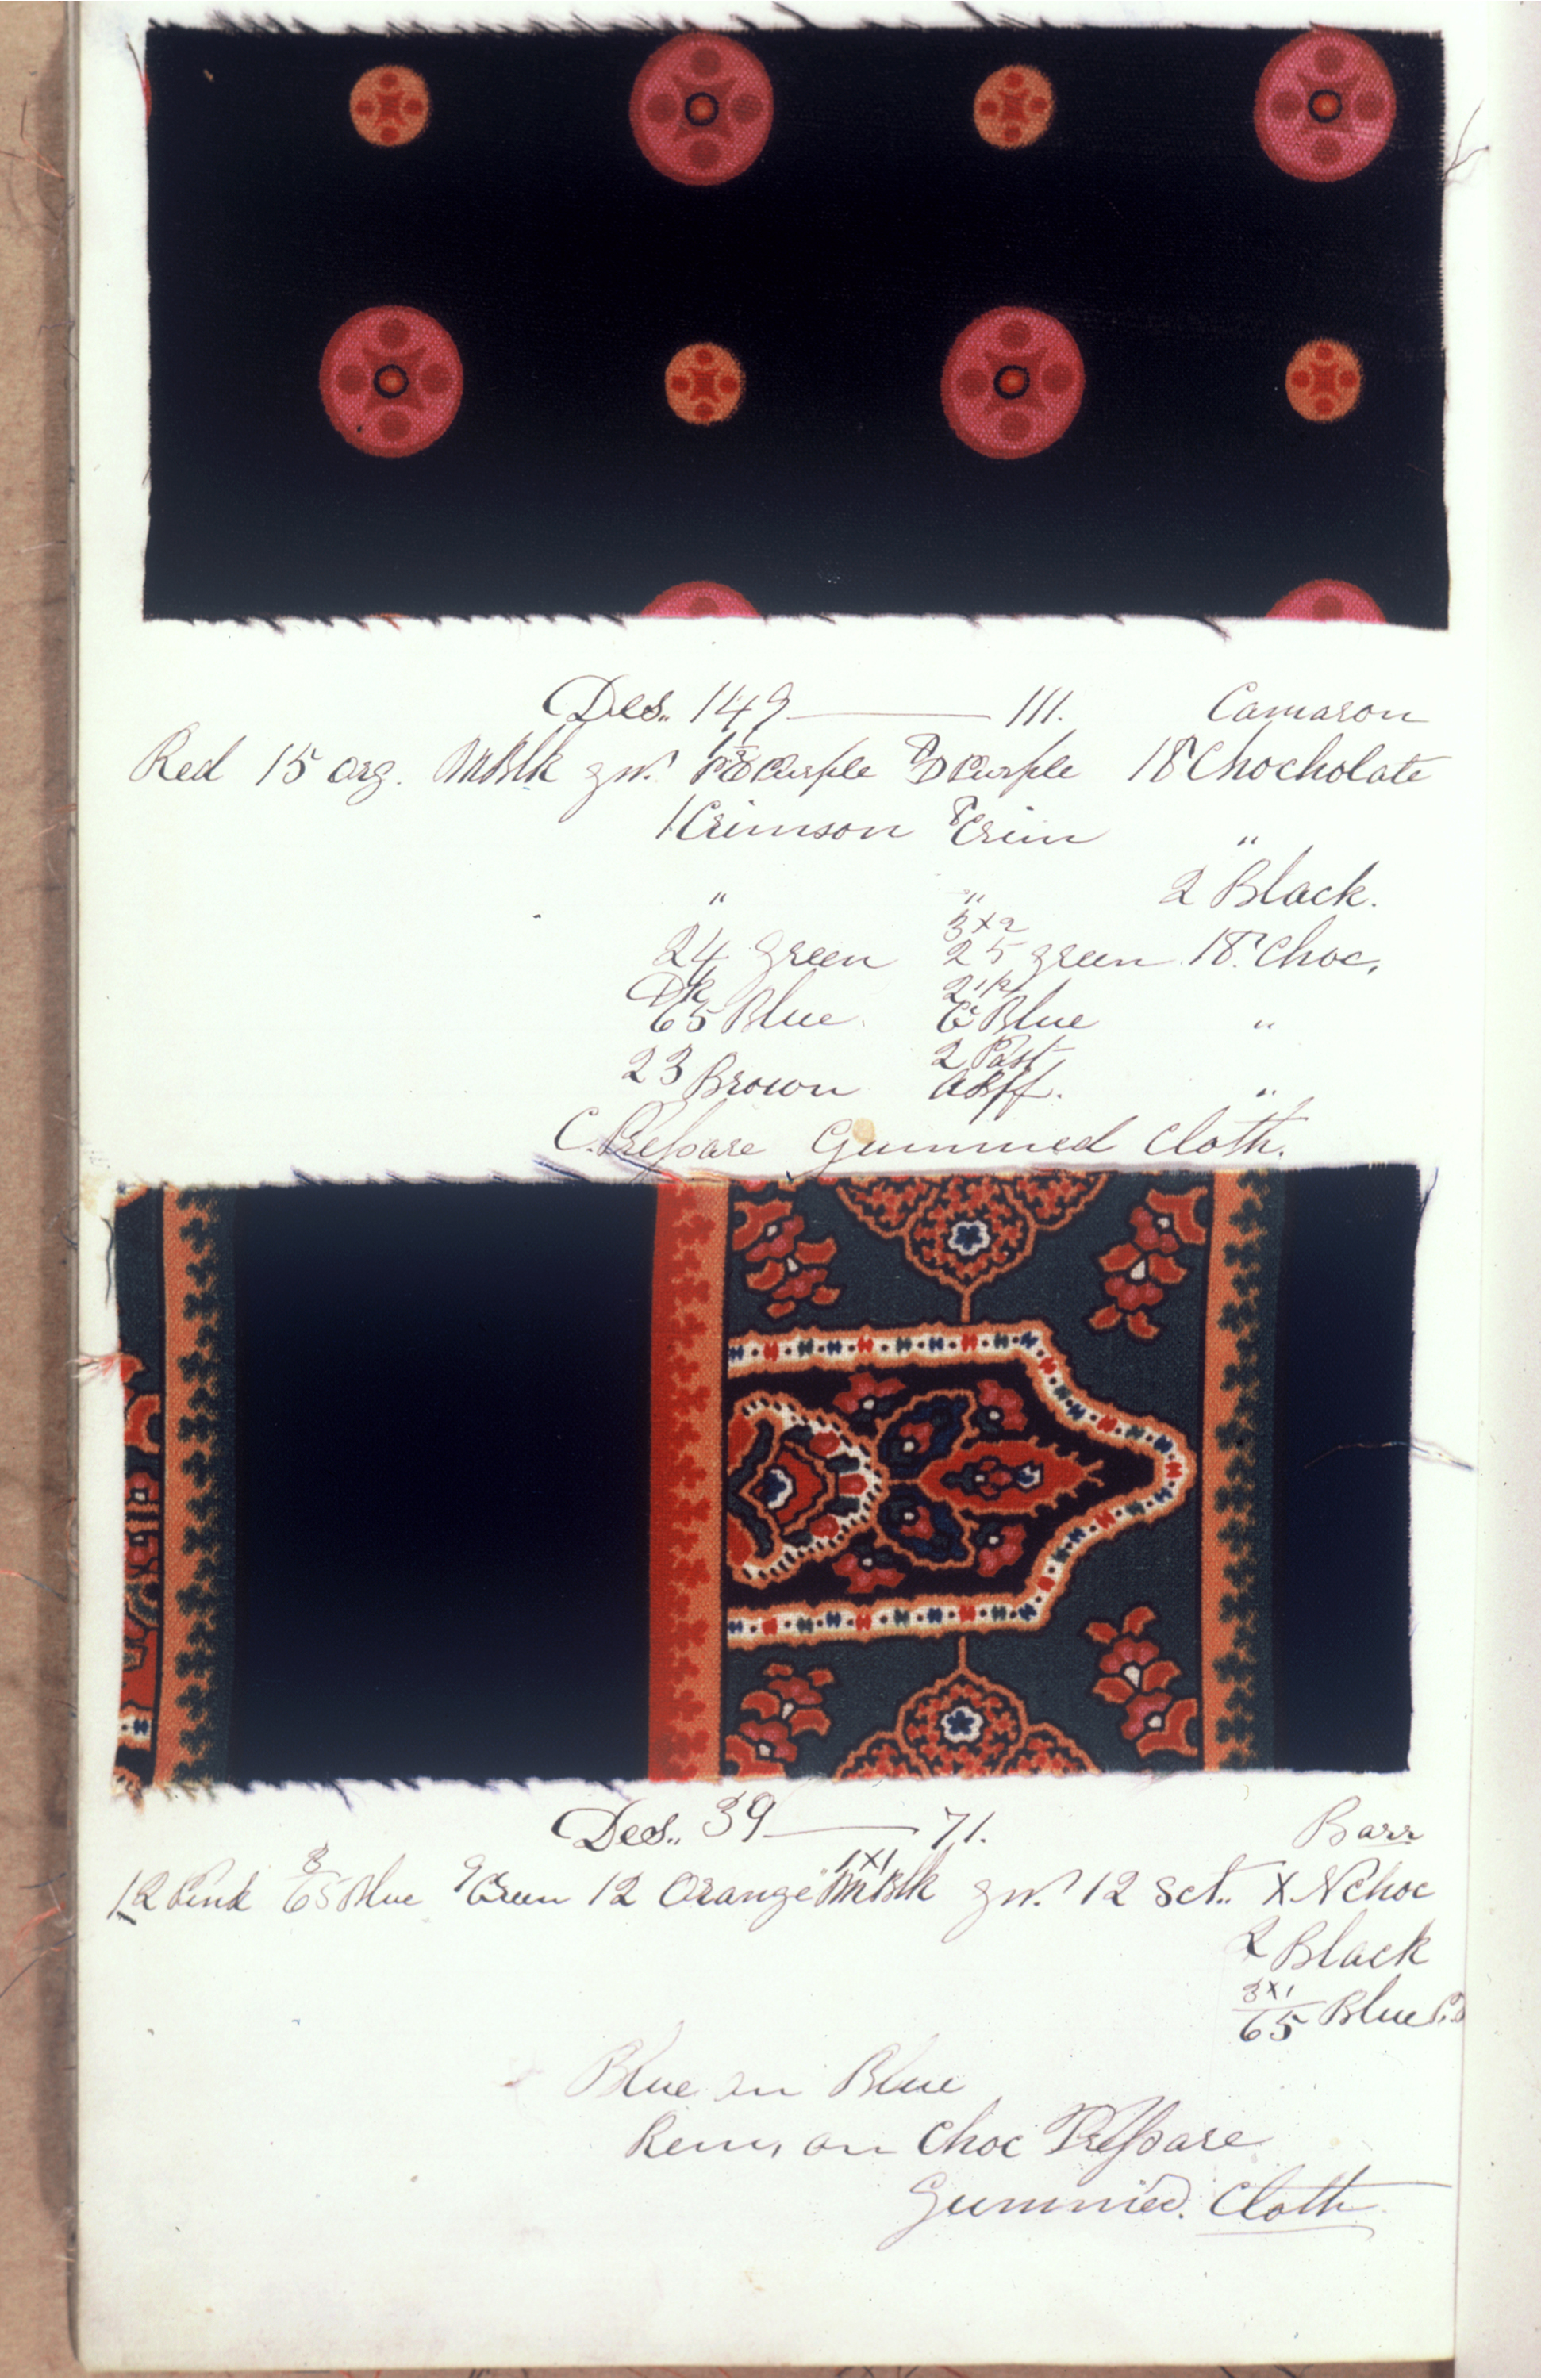 Des. 149 — 111. Camason
Red 15 org. Blk gn. Purple Purple 18 Chocholate
1 Crimson 8 Crim "
" " 2 Black.
3x2
24 Green 25 green 18 Choc,
Dk
65 Blue. Blue "
2 Past
23 Brown "
C. Prepare Gummed Cloth.
Des. 39 — 71. Barr
12 Pink 65 Blue 12 Orange Blk gn. 12 Sct. X N Choc
2 Black
3x1
65 Blue
Blue on Blue
on Choc Prepare
Gummed. Cloth